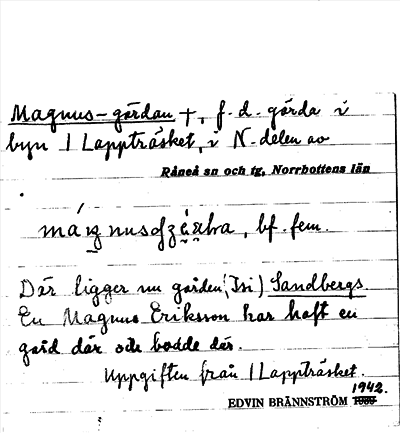 Magnus-gårdan +, f. d. gårda i
byn 1 Lappträsket, i N-delen av
Råneå sn och tg, Norrbottens län
bf. fem.
Där ligger nu gården (Isi) Sandbergs.
En Magnus Eriksson har haft en
gård där och bodde där.
Uppgiften från 1 Lappträsket.
1942.
EDVIN BRÄNNSTRÖM